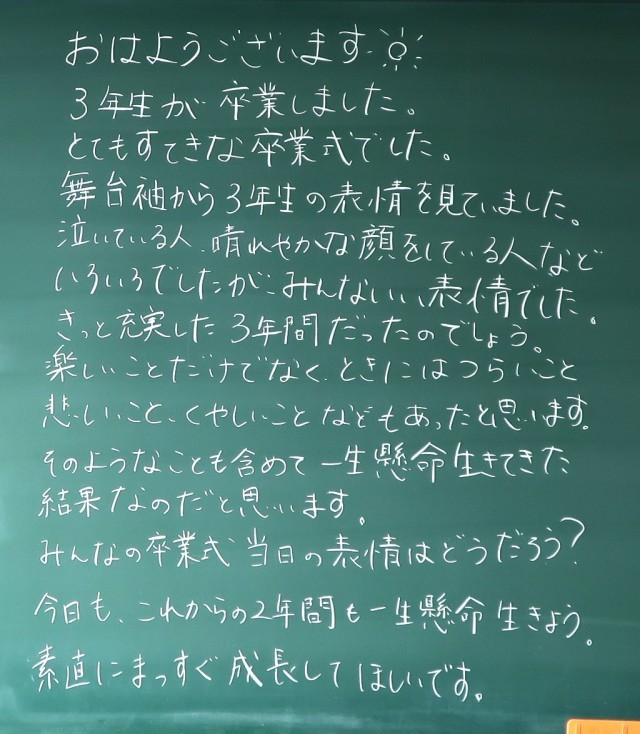 おはようございます
3年生が卒業しました。
とてもすてきな卒業式でした。
舞台袖から3年生の表情を見ていました。
泣いている人、晴れやかな顔をしている人など
いろいろでしたが、みんないい表情でした。
きっと充実した3年間だったのでしょう。
楽しいことだけでなく、ときにはつらいこと
悲しいこと、くやしいことなどもあったと思います。
そのようなことも含めて一生懸命生きてきた
結果なのだと思います。
みんなの卒業式当日の表情はどうだろう?
今日も、これからの2年間も一生懸命生きよう。
素直にまっすぐ成長してほしいです。